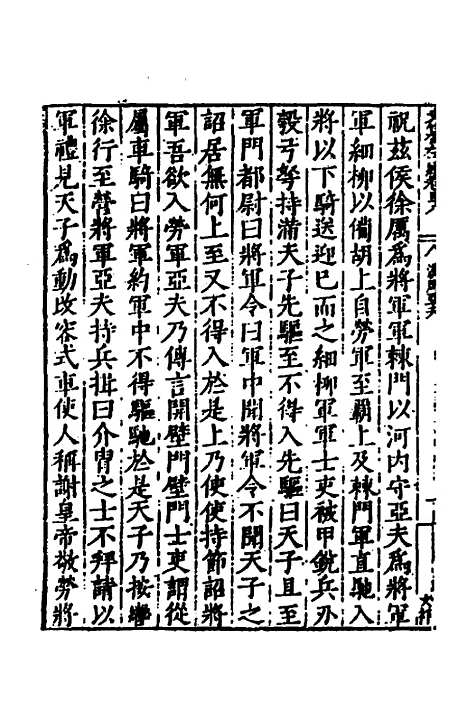 祝玆侯徐厲爲將軍軍棘門以河内守亞夫爲將軍
軍細柳以備胡上自勞軍至覇上及棘門軍直馳入
將以下騎送迎已而之細柳軍軍士吏被甲銳兵刃
彀弓弩持滿天子先驅至不得入先驅曰天子且至
軍門都尉曰將軍令曰軍中聞將軍令不聞天子之
詔居無何上至又不得入於是上乃使使持節詔將
軍吾欲入勞軍亞夫乃傳言開壁門壁門士吏謂從
屬車騎曰將軍約軍中不得驅馳於是天子乃按轡
徐行至營將軍亞夫持兵揖曰介胄之士不拜請以
軍禮見天子爲動改容式車使人稱謝皇帝敬勞將